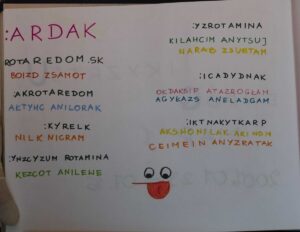 :ARDAK
ROTAREDOM.SK
BOIZD ZSAMOT
:AKROTAREDOM
ANILORAK
:KYRELK
NILK
:YNZCYZUM ROTAMINA
KEZCOT ANILEWE
:YZROTAMINA
KILAHCIM ANYTSUJ
NARAB ZSUETAM
:ICADYDNAK
ATAZROGŁAM
AGYŁAZS ANELADGAM
:IKTNAKYTKARP
AKINOM
CEIMEIN ANYZRATAK